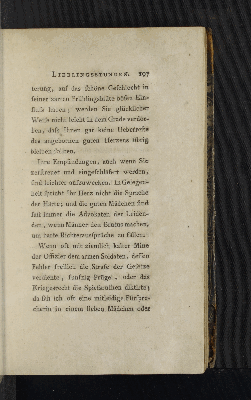 LIEBLINGSSTUNDEN. 197
terung, auf das schöne Geschlecht in
seiner zarten Frühlingsblüte
; werden Sie glücklicher
Weise nicht leicht in dem Grade verdor-
ben, daß Ihnen gar keine Ueberreste
des angebornen guten Herzens übrig
bleiben sollten.
Ihre Empfindungen, auch wenn Sie
zerstreuet und eingeschläfert werden,
sind leichter aufzuwecken. In Gelegen-
heit spricht Ihr Herz nicht die Sprache
der Härte; und die guten Mädchen sind
fast immer die Advokaten der Leiden-
den, wenn Männer den Beruf machen,
um harte Richteraussprüche zu fällen.
Wenn oft mit ziemlich kalter Mine
der Offizier dem armen Soldaten, dessen
Fehler freilich die Strafe der Gesetze
verdiente, funfzig Prügel, oder das
Kriegsrecht die Spießruthen diktirte;
da sah ich oft eine mitleidige Fürspre-
cherin in einem lieben Mädchen oder